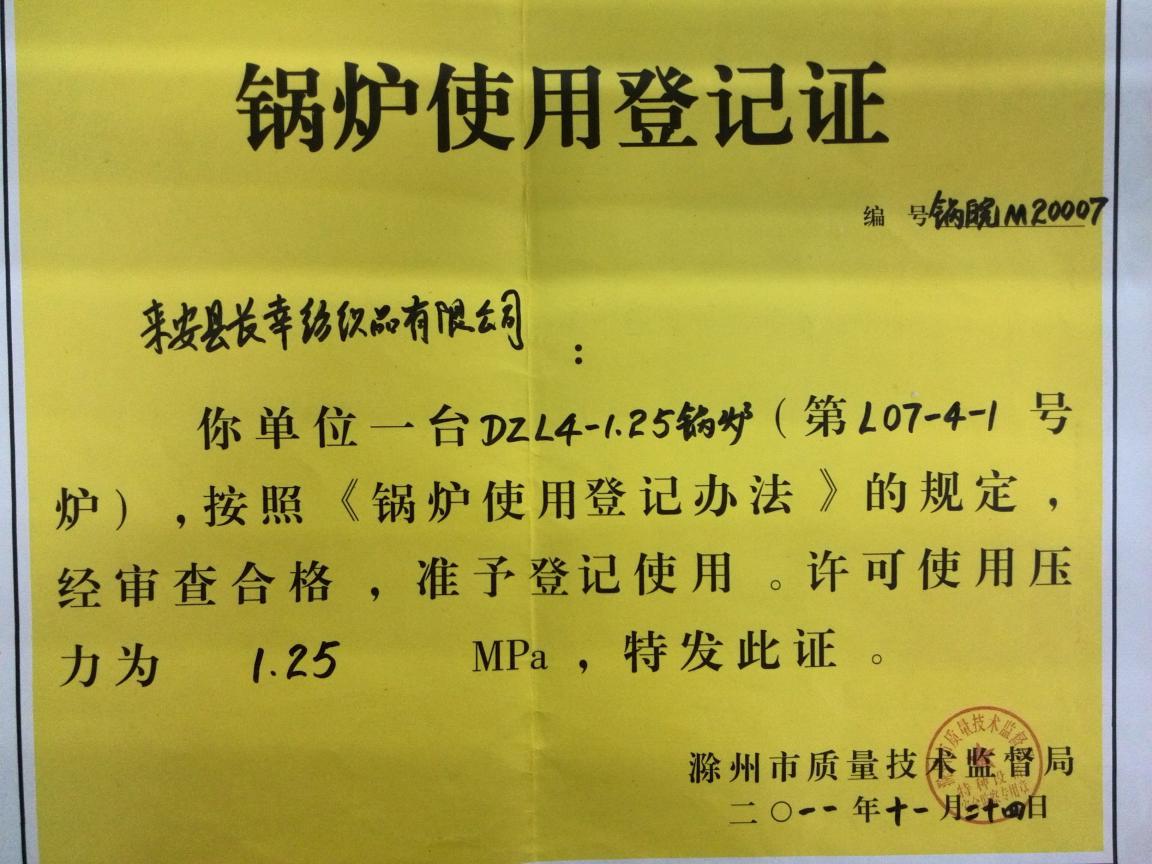 锅炉使用登记证
编 号锅皖M20007
来安县长幸纺织品有限公司
：
你单位一台DZL4-1.25锅炉（第L07-4-1 号
炉），按照《锅炉使用登记办法》的规定，
经审查合格，准予登记使用。许可使用压
力为 1.25 MPa，特发此证。
滁州市质量技术监督局
二〇一一年十一月二十四日